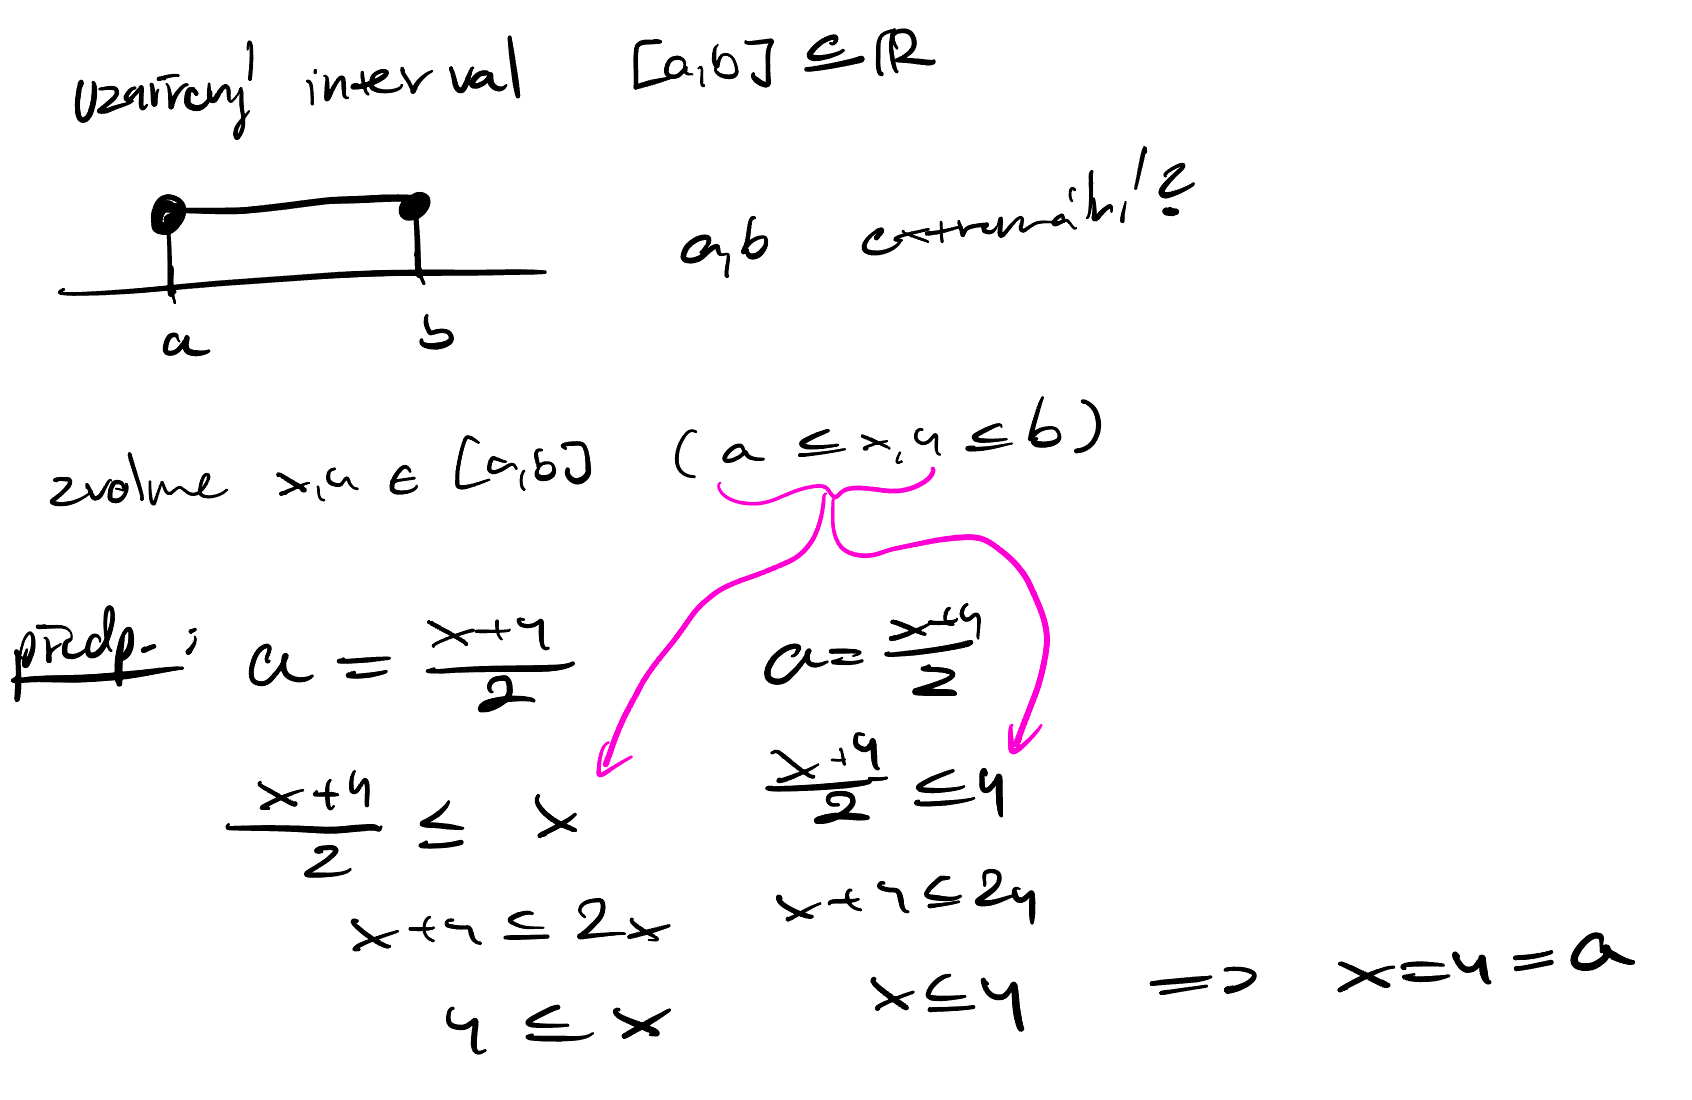 uzavřený interval [a,b] ⊆ ℝ
a,b extremální?
a b
zvolme x,y ∈ [a,b] (a ≤ x,y ≤ b)
předp.: a = (x+y)/2 a = (x+y)/2
(x+y)/2 ≤ x (x+y)/2 ≤ y
x+y ≤ 2x x+y ≤ 2y
y ≤ x x ≤ y ⇒ x=y=a